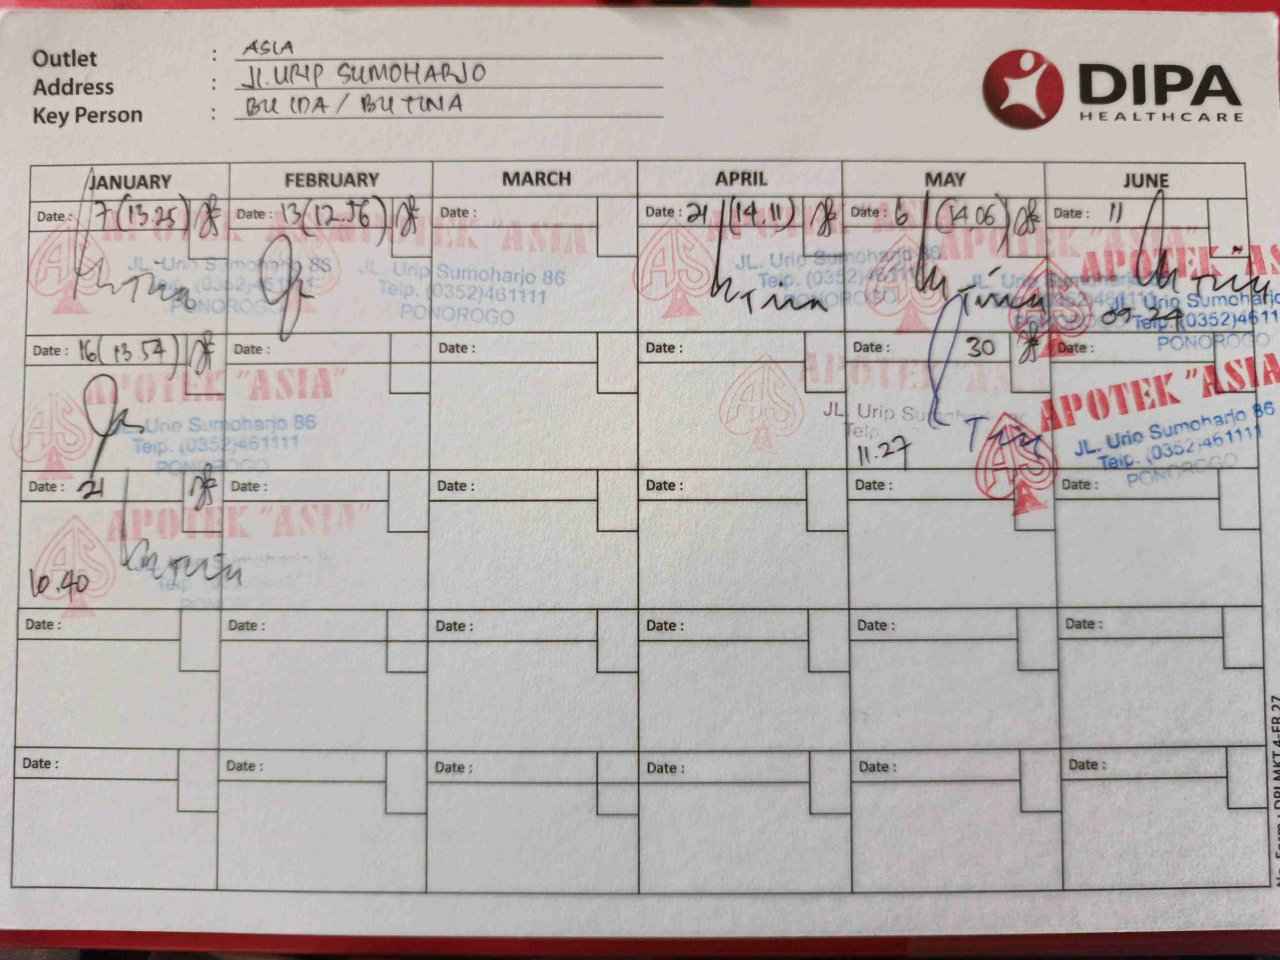 Outlet : ASIA
Address : Jl. URIP SUMOHARJO
Key Person : BU IDA / BU TINA
DIPA
HEALTHCARE
JANUARY FEBRUARY MARCH APRIL MAY JUNE
Date : 7 (13.25) Date : 13 (12.56) Date : Date : 21 (14.11) Date : 6 (14.06) Date : 11
APOTEK "ASIA"
JL. Urip Sumoharjo 86
Telp. (0352)461111
PONOROGO
JL. Urip Sumoharjo 86
Telp. (0352)461111
PONOROGO
Tina
JL. Urip Sumoharjo 86
Telp. (0352)461111
PONOROGO
Tina
APOTEK "ASIA"
APOTEK "ASIA"
JL. Urip Sumoharjo
Telp. (0352)4611
PONOROGO
09.24
Date : 16 (13.54) Date : Date : Date : Date : 30 Date :
APOTEK "ASIA"
JL. Urip Sumoharjo 86
Telp. (0352)461111
PONOROGO
JL. Urip
Telp.
11.27
APOTEK "ASIA
JL. Urip Sumoharjo 86
Telp. (0352)461111
PONOROGO
Date : 21 Date : Date : Date : Date : Date :
APOTEK "ASIA"
10.40
Date : Date : Date : Date : Date : Date :
Date : Date : Date : Date : Date : Date :